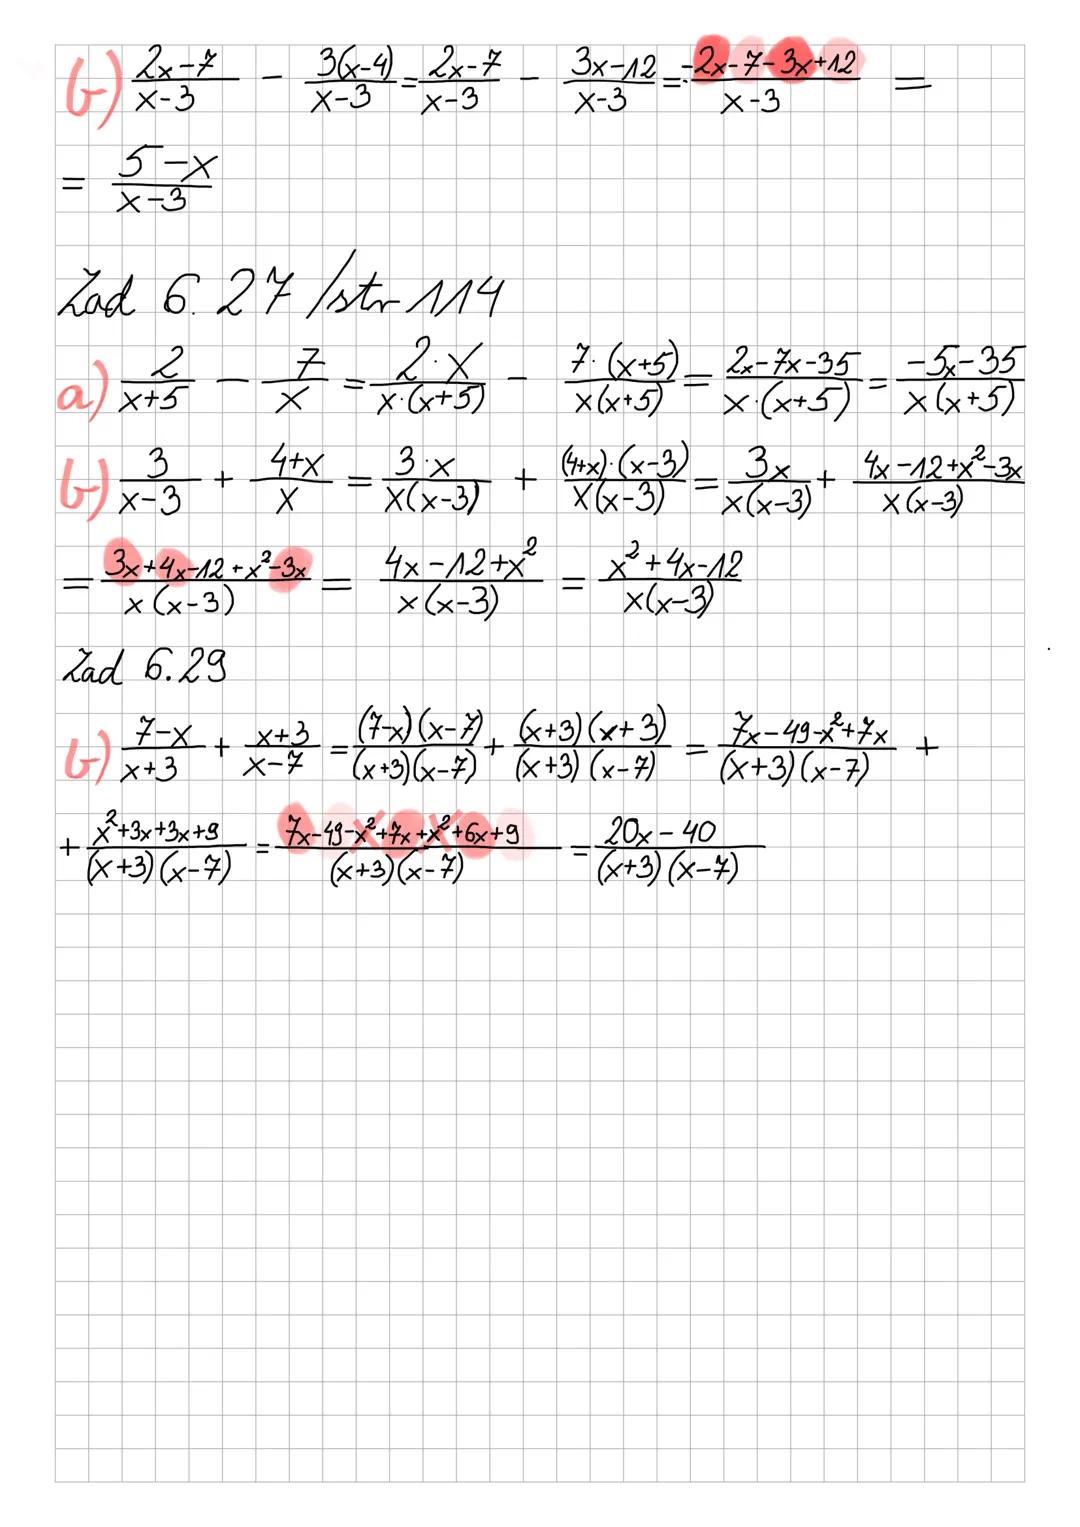 b) \frac{2x-7}{x-3} - \frac{3(x-4)}{x-3} = \frac{2x-7}{x-3} - \frac{3x-12}{x-3} = \frac{-2x-7-3x+12}{x-3} =
= \frac{5-x}{x-3}
Zad 6.27 /str 114
a) \frac{2}{x+5} - \frac{7}{x} = \frac{2·x}{x·(x+5)} - \frac{7·(x+5)}{x(x+5)} = \frac{2x-7x-35}{x·(x+5)} = \frac{-5x-35}{x(x+5)}
b) \frac{3}{x-3} + \frac{4+x}{x} = \frac{3·x}{x(x-3)} + \frac{(4+x)·(x-3)}{x(x-3)} = \frac{3x}{x(x-3)} + \frac{4x-12+x²-3x}{x(x-3)}
= \frac{3x+4x-12+x²-3x}{x(x-3)} = \frac{4x-12+x²}{x(x-3)} = \frac{x²+4x-12}{x(x-3)}
Zad 6.29
b) \frac{7-x}{x+3} + \frac{x+3}{x-7} = \frac{(7-x)(x-7)}{(x+3)(x-7)} + \frac{(x+3)(x+3)}{(x+3)(x-7)} = \frac{7x-49-x²+7x}{(x+3)(x-7)} +
+ \frac{x²+3x+3x+9}{(x+3)(x-7)} = \frac{7x-49-x²+7x+x²+6x+9}{(x+3)(x-7)} = \frac{20x-40}{(x+3)(x-7)}